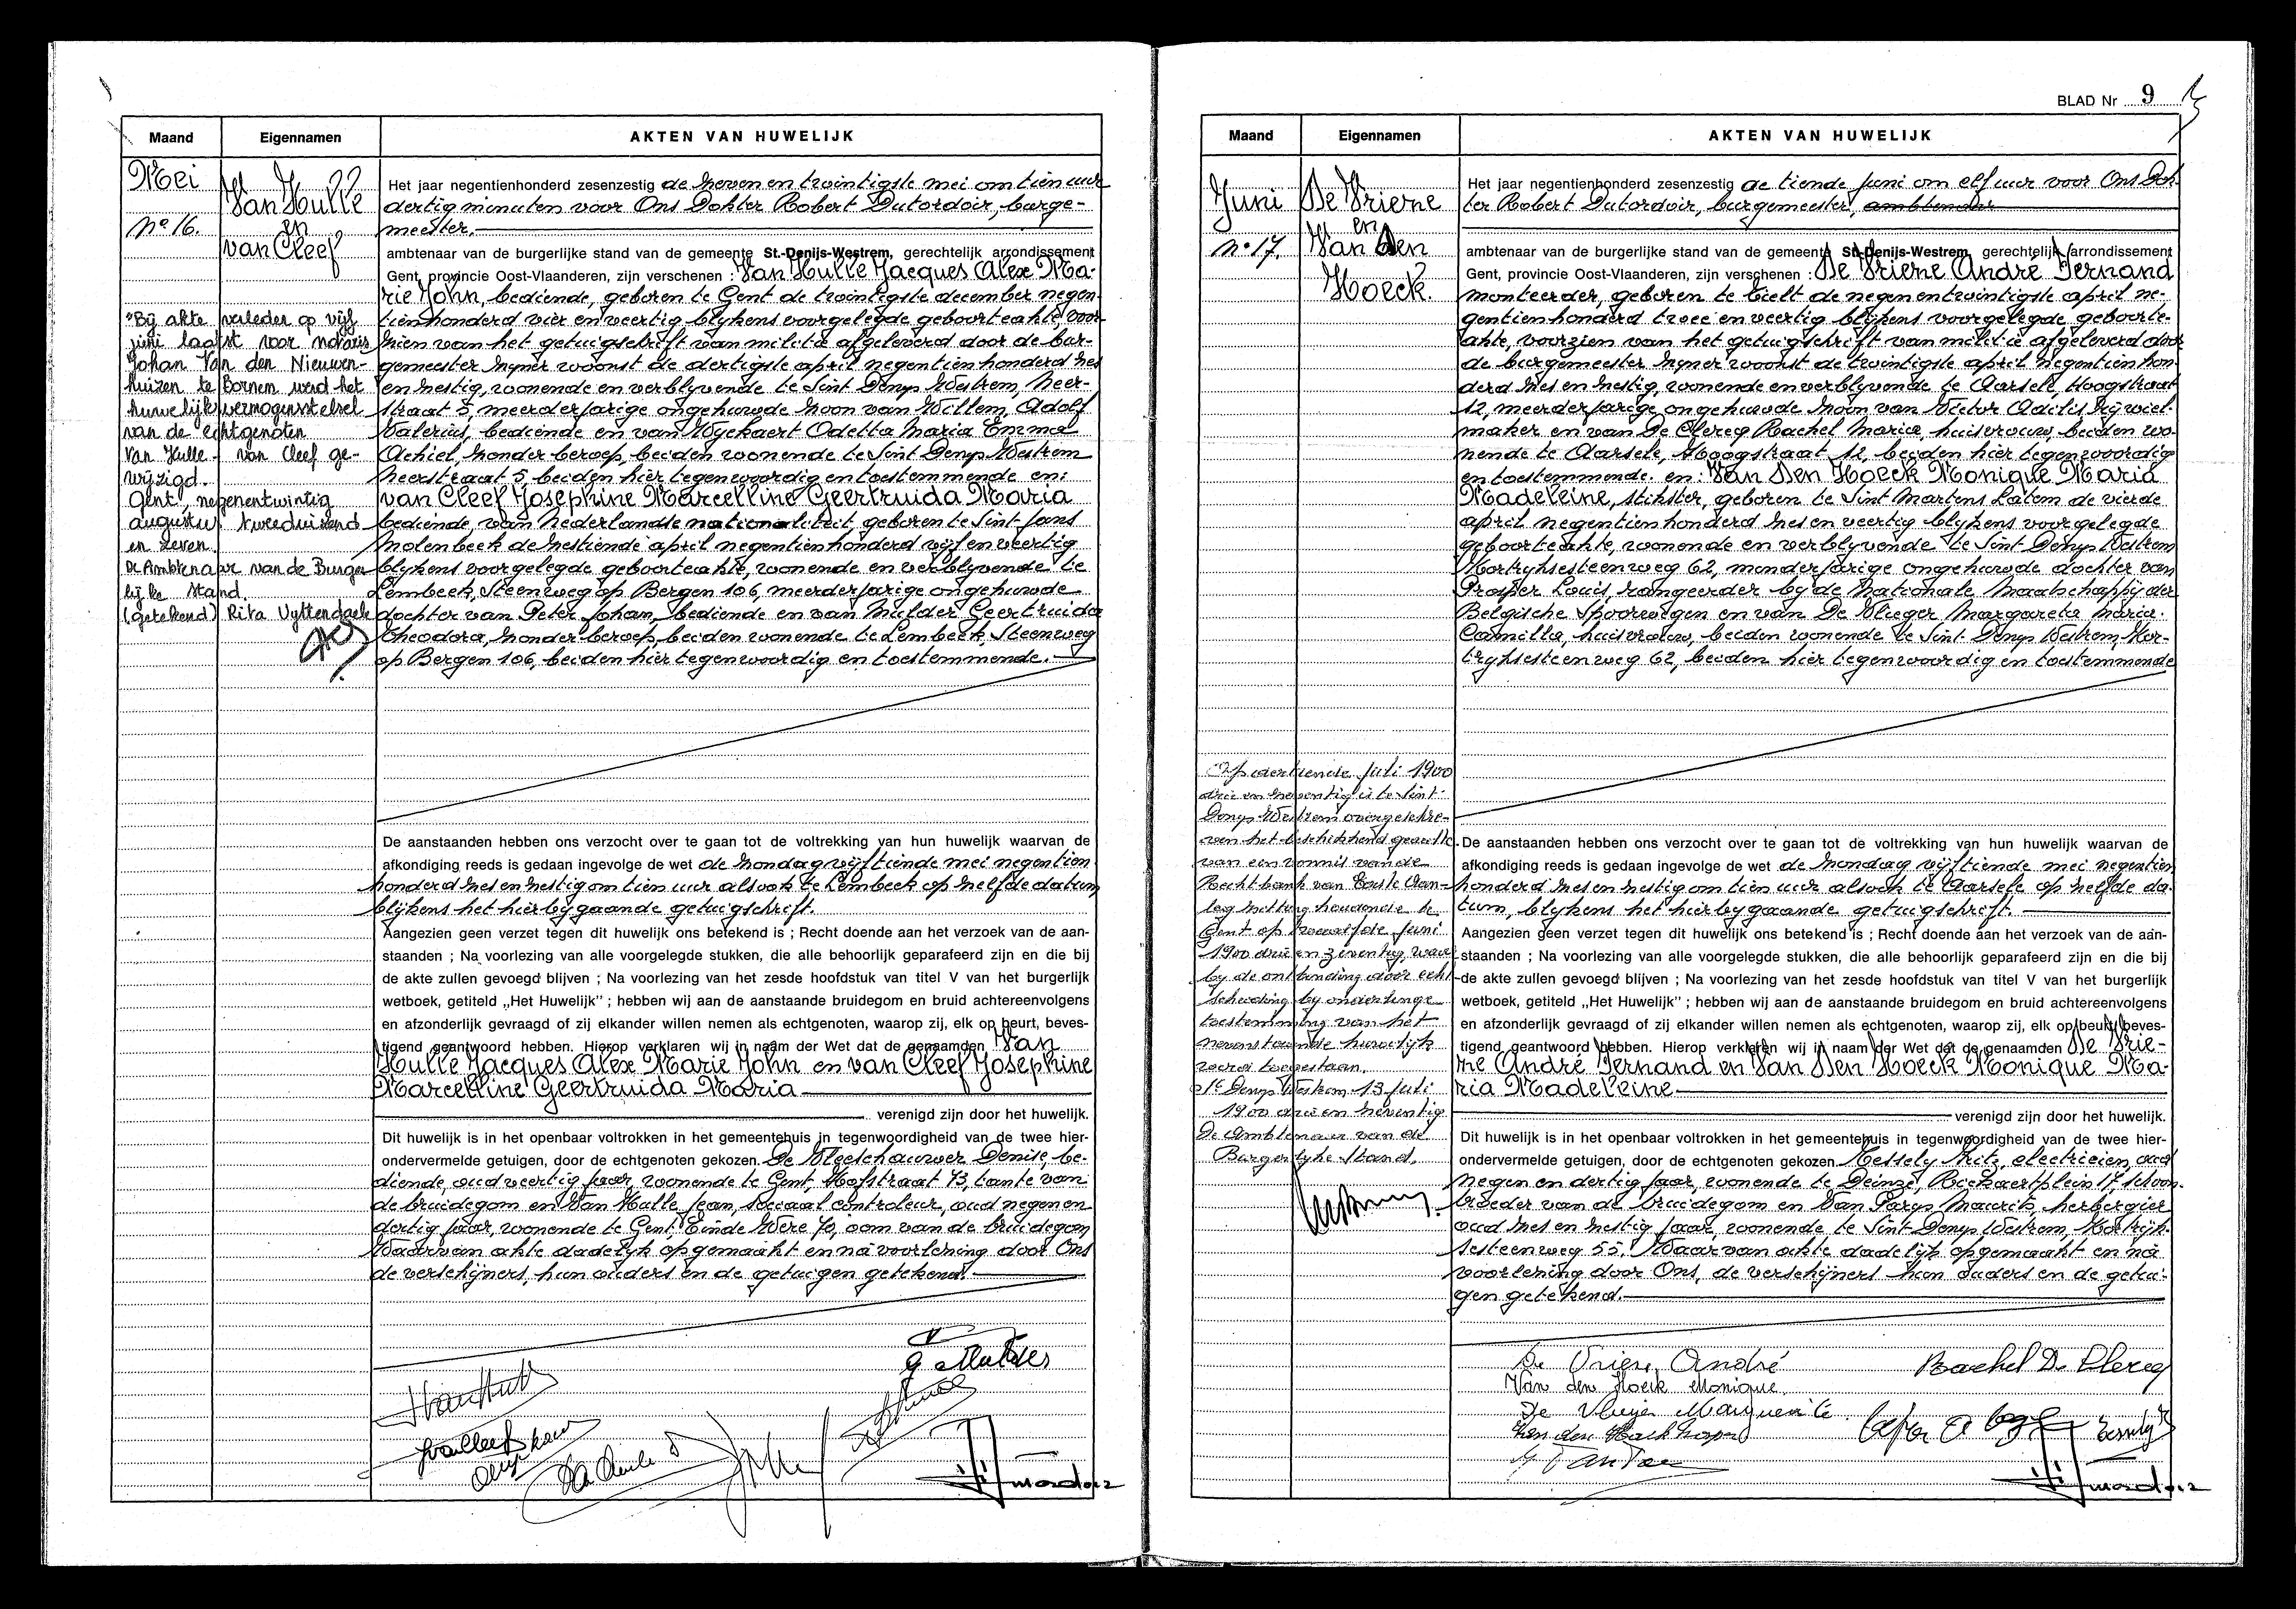 Maand
Eigennamen
AKTEN VAN HUWELIJK
Mei
Nº 16.
Van Hulle
en
van Cleef
"Bij akte verleden op vijf
juni laatst voor notaris
Johan Van den Nieuwen-
huizen te Bornem werd het
huwelijksvermogensstelsel
van de echtgenoten
Van Hulle - van Cleef ge-
wijzigd.
Gent, negenentwintig
augustus tweeduizend
en zeven.
De Ambtenaar van de Burger-
lijke Stand.
(getekend) Rita Uyttendaele
Het jaar negentienhonderd zesenzestig de zeven en twintigste mei om tien uur
dertig minuten voor Ons Dokter Robert Dutordoir, burge-
meester,
ambtenaar van de burgerlijke stand van de gemeente St.-Denijs-Westrem, gerechtelijk arrondissement
Gent, provincie Oost-Vlaanderen, zijn verschenen : Van Hulle Jacques Alex Ma-
rie John, bediende, geboren te Gent de twintigste december negen-
tienhonderd vier en veertig blykens voorgelegde geboorteakte, voor-
zien van het getuigschrift van militie afgeleverd door de bur-
gemeester zyner woonst de dertigste april negentienhonderd zes
en zestig, wonende en verblyvende te Sint Denys Westrem, Heer-
straat 5, meerderjarige ongehuwde zoon van Willem, Adolf
Valerius, bediende en van Wyckaert Odetta Maria Emma
Achiel, zonder beroep, beiden wonende te Sint Denys Westrem
Heerstraat 5, beiden hier tegenwoordig en toestemmende en:
van Cleef Josephine Marcelline Geertruida Maria
bediende, van Nederlandse nationaliteit, geboren te Sint-Jans
Molenbeek de zestiende april negentienhonderd vijf en veertig
blykens voorgelegde geboorteakte, wonende en verblyvende te
Lembeek, Steenweg op Bergen 106, meerderjarige ongehuwde
dochter van Peter Johan, bediende en van Mulder Geertruida
Theodora, zonder beroep, beiden wonende te Lembeek, Steenweg
op Bergen 106, beiden hier tegenwoordig en toestemmende.
De aanstaanden hebben ons verzocht over te gaan tot de voltrekking van hun huwelijk waarvan de
afkondiging reeds is gedaan ingevolge de wet de zondag vijftiende mei negentien
honderd zes en zestig om tien uur alsook te Lembeek op zelfde datum
blijkens het hierbygaande getuigschrift.
Aangezien geen verzet tegen dit huwelijk ons betekend is ; Recht doende aan het verzoek van de aan-
staanden ; Na voorlezing van alle voorgelegde stukken, die alle behoorlijk geparafeerd zijn en die bij
de akte zullen gevoegd blijven ; Na voorlezing van het zesde hoofdstuk van titel V van het burgerlijk
wetboek, getiteld „Het Huwelijk" ; hebben wij aan de aanstaande bruidegom en bruid achtereenvolgens
en afzonderlijk gevraagd of zij elkander willen nemen als echtgenoten, waarop zij, elk op beurt, beves-
tigend geantwoord hebben. Hierop verklaren wij in naam der Wet dat de genaamden Van
Hulle Jacques Alex Marie John en van Cleef Josephine
Marcelline Geertruida Maria
verenigd zijn door het huwelijk.
Dit huwelijk is in het openbaar voltrokken in het gemeentehuis in tegenwoordigheid van de twee hier-
ondervermelde getuigen, door de echtgenoten gekozen De Vleeschauwer Denise, be-
diende, oud veertig jaar, wonende te Gent, Hofstraat 73, tante van
de bruidegom en Van Hulle Jean, sociaal controleur, oud negen en
dertig jaar, wonende te Gent, Einde Were 70, oom van de bruidegom
Waarvan akte dadelyk opgemaakt en na voorlezing door Ons
de verschijners, hun ouders en de getuigen getekend.
G Mulder
BLAD Nr 9
Maand
Eigennamen
AKTEN VAN HUWELIJK
Juni
Nº 17.
De Vriene
en
Van Den
Hoeck.
Het jaar negentienhonderd zesenzestig de tiende juni om elf uur voor Ons Dok-
ter Robert Dutordoir, burgemeester, ambtenaar
ambtenaar van de burgerlijke stand van de gemeente St-Denijs-Westrem, gerechtelijk arrondissement
Gent, provincie Oost-Vlaanderen, zijn verschenen : De Vriene André Fernand
monteerder, geboren te Tielt de negen en twintigste april ne-
gentienhonderd twee en veertig blijkens voorgelegde geboorte-
akte, voorzien van het getuigschrift van militie afgeleverd door
de burgemeester zyner woonst de twintigste april negentienhon-
derd zes en zestig, wonende en verblyvende te Aarsele, Hoogstraat
12, meerderjarige ongehuwde zoon van Victor Adilis rijwiel-
maker en van De Clercq Rachel Maria, huisvrouw, beiden wo-
nende te Aarsele, Hoogstraat 12, beiden hier tegenwoordig
en toestemmende. en: Van Den Hoeck Monique Maria
Madeleine, stikster, geboren te Sint Martens Latem de vierde
april negentienhonderd zes en veertig blykens voorgelegde
geboorteakte, wonende en verblyvende te Sint Denys Westrem
Kortryksesteenweg 62, minderjarige ongehuwde dochter van
Prosper Louis, rangeerder by de Nationale Maatschappij der
Belgische Spoorwegen en van De Vlieger Margareta Maria
Camilla, huisvrouw, beiden wonende te Sint Denys Westrem, Kor-
tryksesteenweg 62, beiden hier tegenwoordig en toestemmende
Op dertiende Juli 1900
drie en zeventig is te Sint-
Denys Westrem overgeschre-
ven het beschikkend gedeelte
van een vonnis van de
Rechtbank van Eerste Aan-
leg zitting houdende te
Gent op twaalfde Juni
1900 drie en zeventig, waar
by de ontbinding door echt-
scheiding by onderlinge
toestemming van het
nevenstaande huwelijk
werd toegestaan.
St Denys Westrem 13 Juli
1900 drie en zeventig
De Ambtenaar van de
Burgerlyke Stand,
De aanstaanden hebben ons verzocht over te gaan tot de voltrekking van hun huwelijk waarvan de
afkondiging reeds is gedaan ingevolge de wet de zondag vijftiende mei negentien
honderd zes en zestig om tien uur alsook te Aarsele op zelfde da-
tum, blykens het hierbygaande getuigschrift.
Aangezien geen verzet tegen dit huwelijk ons betekend is ; Recht doende aan het verzoek van de aan-
staanden ; Na voorlezing van alle voorgelegde stukken, die alle behoorlijk geparafeerd zijn en die bij
de akte zullen gevoegd blijven ; Na voorlezing van het zesde hoofdstuk van titel V van het burgerlijk
wetboek, getiteld „Het Huwelijk" ; hebben wij aan de aanstaande bruidegom en bruid achtereenvolgens
en afzonderlijk gevraagd of zij elkander willen nemen als echtgenoten, waarop zij, elk op beurt, beves-
tigend geantwoord hebben. Hierop verklaren wij in naam der Wet dat de genaamden De Vrie-
ne André Fernand en Van Den Hoeck Monique Ma-
ria Madeleine
verenigd zijn door het huwelijk.
Dit huwelijk is in het openbaar voltrokken in het gemeentehuis in tegenwoordigheid van de twee hier-
ondervermelde getuigen, door de echtgenoten gekozen Kessely Fritz, electricien, oud
negen en dertig jaar, wonende te Deinze, Rickaertplein 17, schoon-
broeder van de bruidegom en Van Parys Maurits, herbergier
oud zes en zestig jaar, wonende te Sint Denys Westrem, Kortrijk-
sesteenweg 55, Waarvan akte dadelijk opgemaakt en na
voorlezing door Ons, de verschijners hun ouders en de getui-
gen getekend.
De Vriene André
Rachel De Clercq
Van den Hoeck Monique
De Vlieger Marguerite